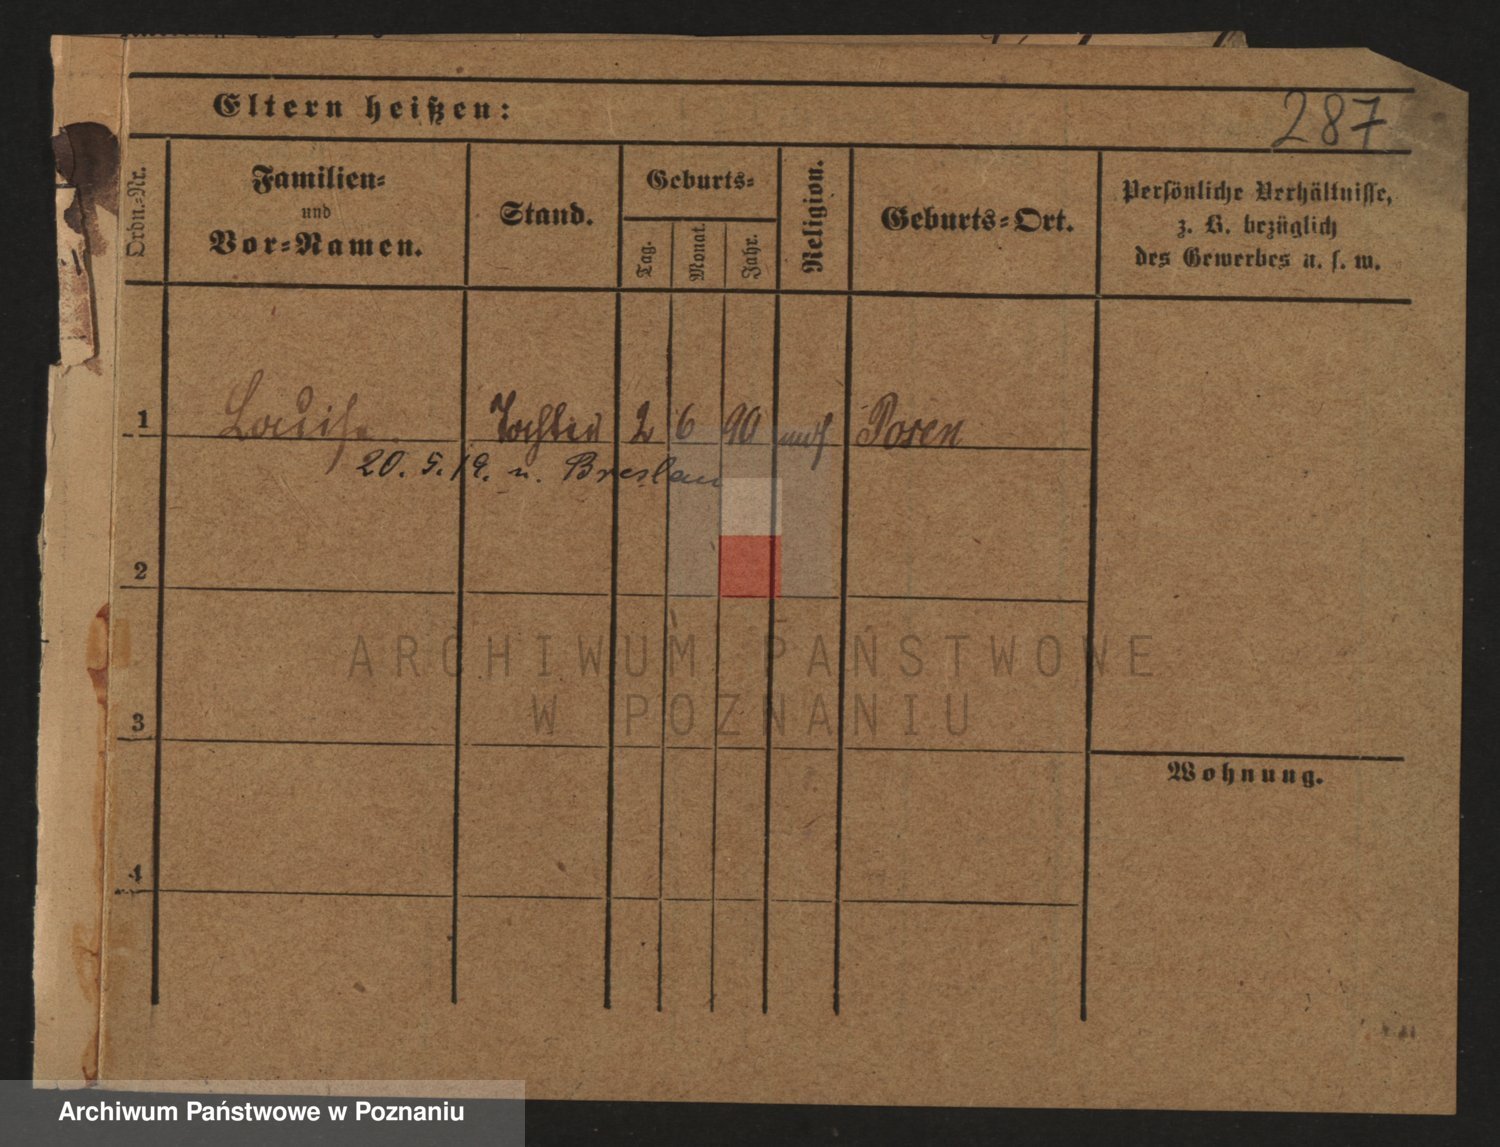 Eltern heißen:
287
Ordn.-Nr.
Familien-
und
Vor-Namen.
Stand.
Geburts-
Tag.
Monat.
Jahr.
Religion.
Geburts-Ort.
Persönliche Verhältnisse,
z. B. bezüglich
des Gewerbes u. s. w.
1 Louise Tochter 2 6 90 Posen
20. 5. 19. n. Breslau
2
ARCHIWUM PAŃSTWOWE
W POZNANIU
3
Wohnung.
4
Archiwum Państwowe w Poznaniu